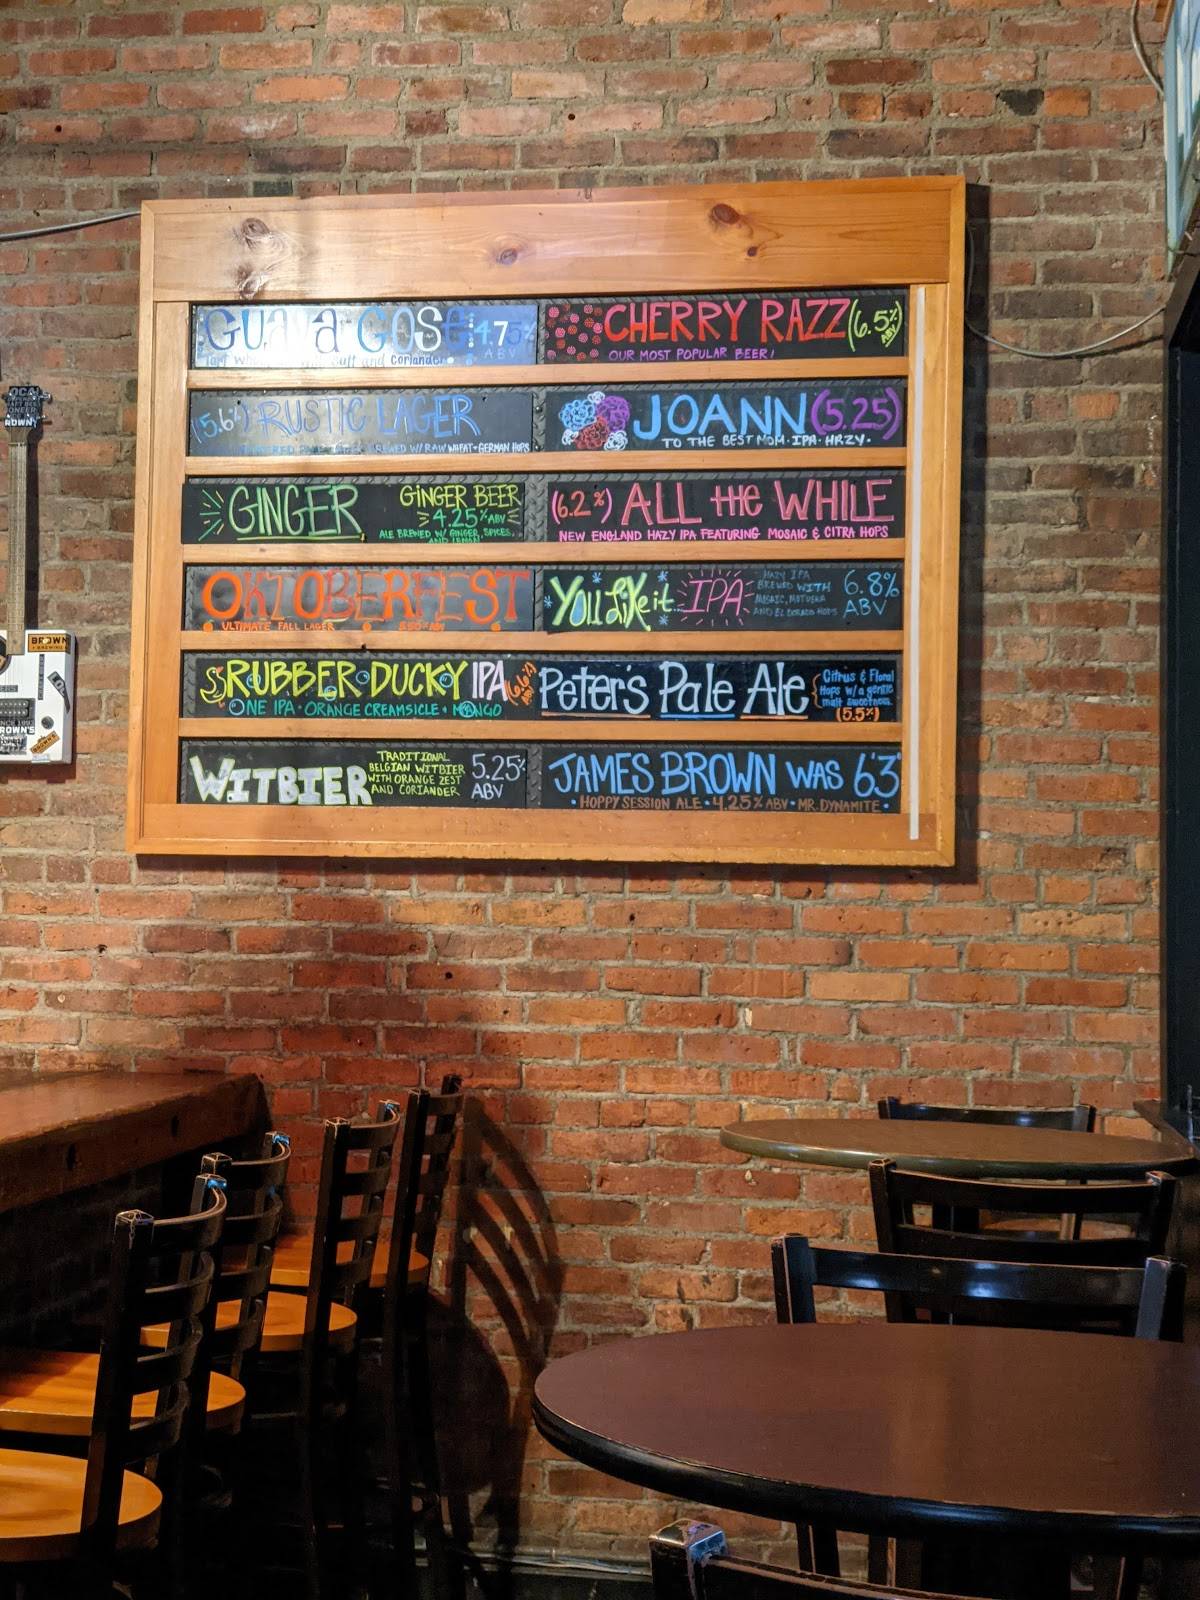 GUAVA GOSE 4.75% ABV
Tart Wh and Coriander
CHERRY RAZZ (6.5% ABV)
OUR MOST POPULAR BEER!
(5.6%) RUSTIC LAGER
W/ RAW WHEAT + GERMAN HOPS
JOANN (5.25)
TO THE BEST MOM · IPA · HRZY ·
GINGER
GINGER BEER
4.25% ABV
ALE BREWED W/ GINGER, SPICES,
AND LEMON
(6.2%) ALL the WHILE
NEW ENGLAND HAZY IPA FEATURING MOSAIC & CITRA HOPS
OKTOBERFEST
ULTIMATE FALL LAGER
You Like it IPA
HAZY IPA
BREWED WITH
MOSAIC, MOTUEKA
AND EL DORADO HOPS
6.8%
ABV
RUBBER · DUCKY IPA (6.6%)
ONE IPA · ORANGE CREAMSICLE + MANGO
Peter's Pale Ale
Citrus & Floral
Hops w/ a gentle
malt sweetness.
(5.5%)
WITBIER
TRADITIONAL
BELGIAN WITBIER
WITH ORANGE ZEST
AND CORIANDER
5.25%
ABV
JAMES BROWN WAS 6'3
· HOPPY SESSION ALE · 4.25% ABV · MR. DYNAMITE ·
BROWN